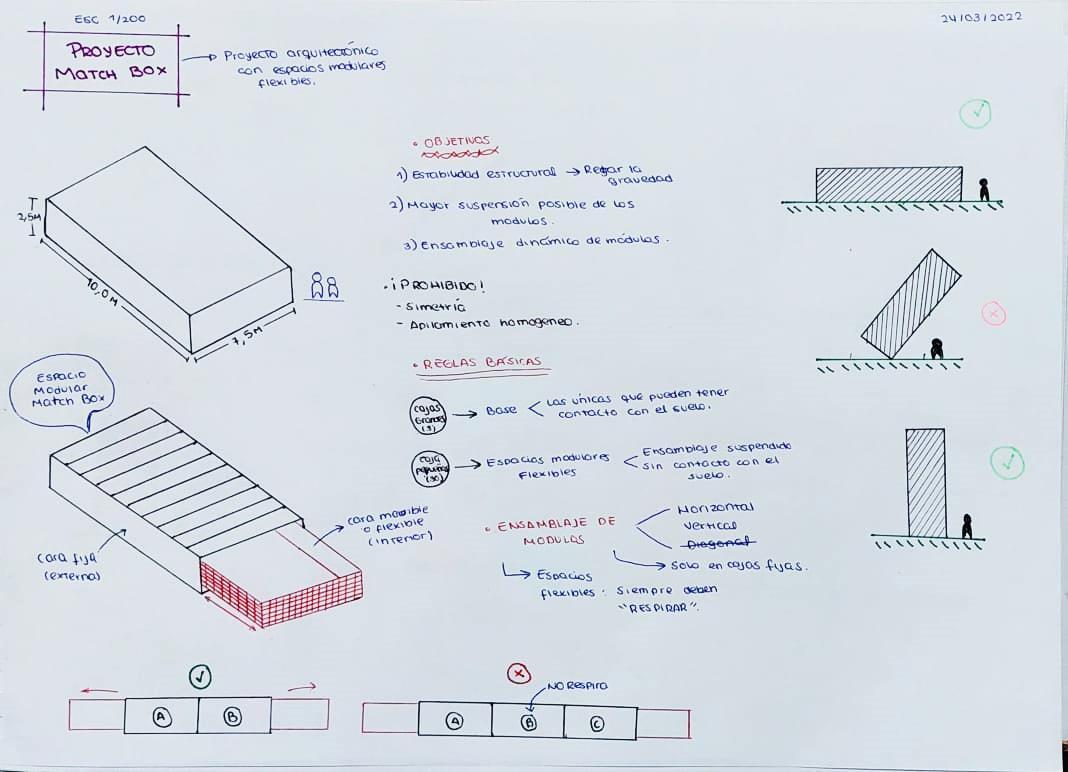 ESC 1/200
24/03/2022
PROYECTO
MATCH BOX
Proyecto arquitectónico
con espacios modulares
flexibles.
2,5M
10,0 M
7,5M
• OBJETIVOS
1) Estabilidad estructural → Retar la
gravedad
2) Mayor suspensión posible de los
modulos.
3) Ensamblaje dinámico de módulos.
• ¡PROHIBIDO!
- Simetría
- Apilamiento homogeneo.
• REGLAS BÁSICAS
Cajas
Grandes
→ Base < Las únicas que pueden tener
contacto con el suelo.
Caja
pequeñas
(30)
→ Espacios modulares
flexibles
< Ensamblaje suspendido
sin contacto con el
suelo.
• ENSAMBLAJE DE
MODULOS
Horizontal
Vertical
Diagonal
→ Solo en cajas fijas.
→ Espacios
flexibles: Siempre deben
"RESPIRAR".
ESPACIO
Modular
Match Box
cara fija
(externa)
cara movible
o flexible
(interior)
A
B
NO RESPIRA
A
B
C